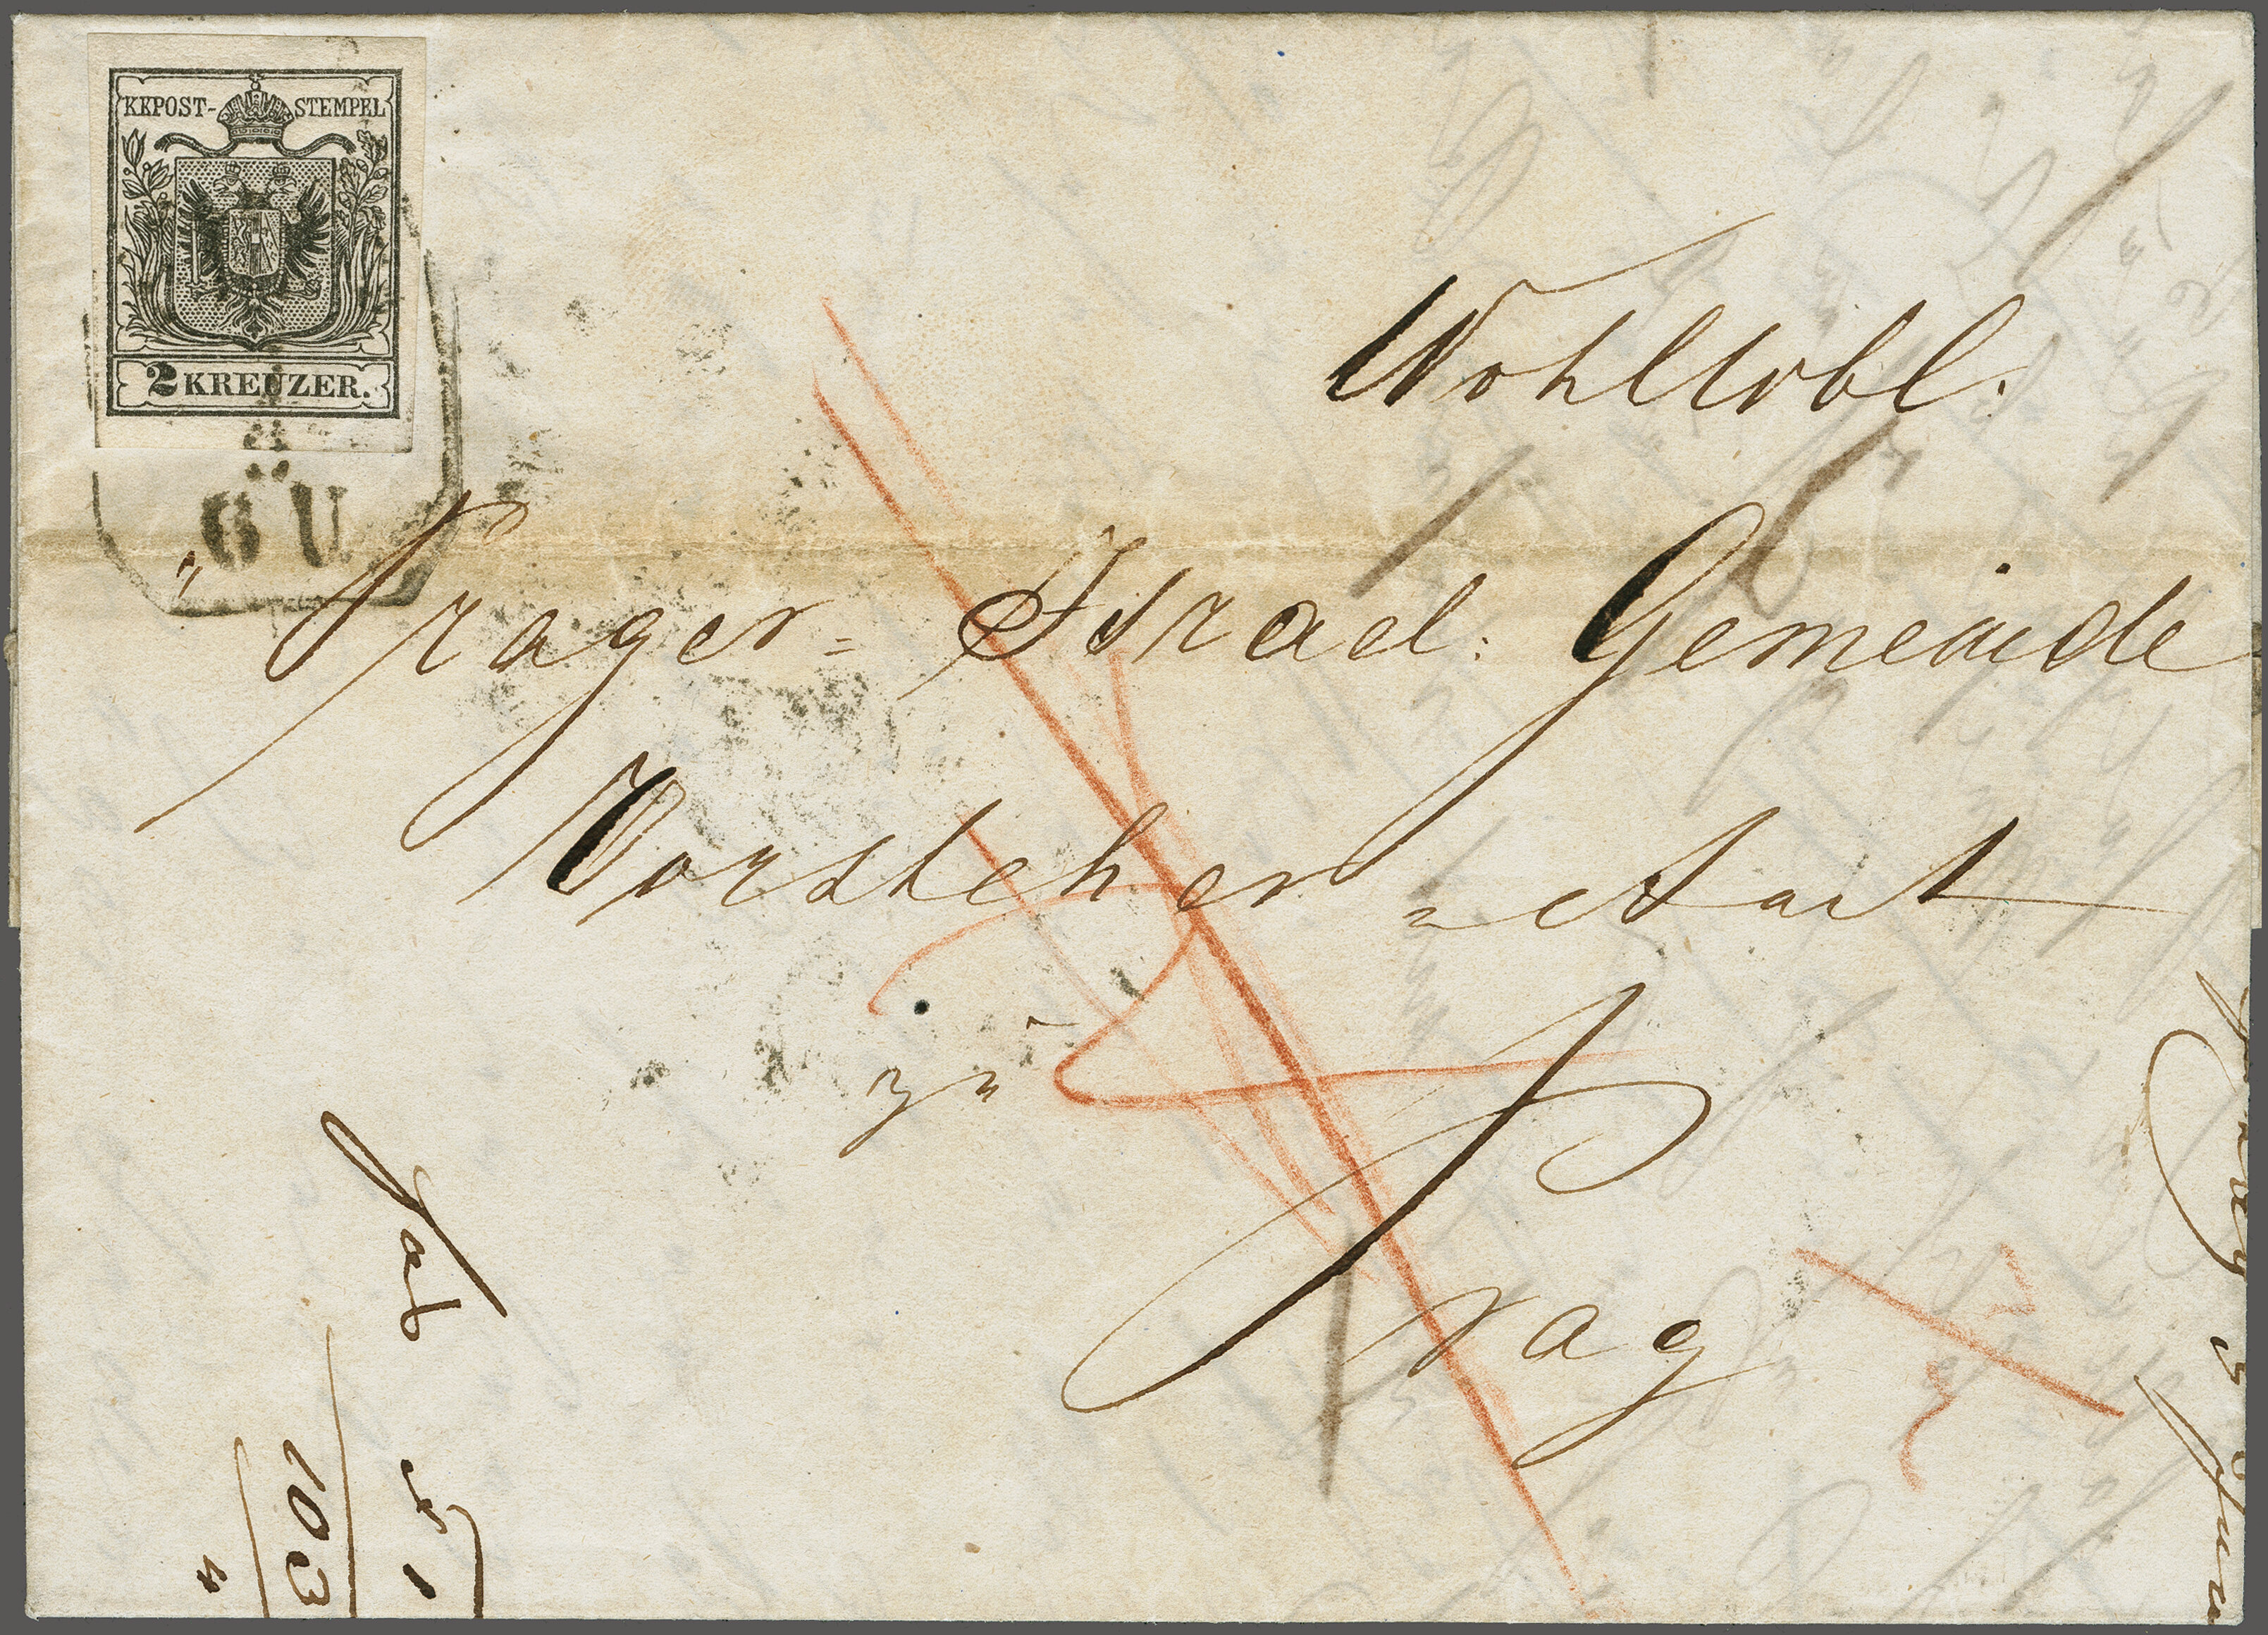 KKPOST-STEMPEL
2 KREUZER.
6 U
Wohllöbl.
" Prager= Israel: Gemeinde
Vorsteher = Amt
zu
Prag
103